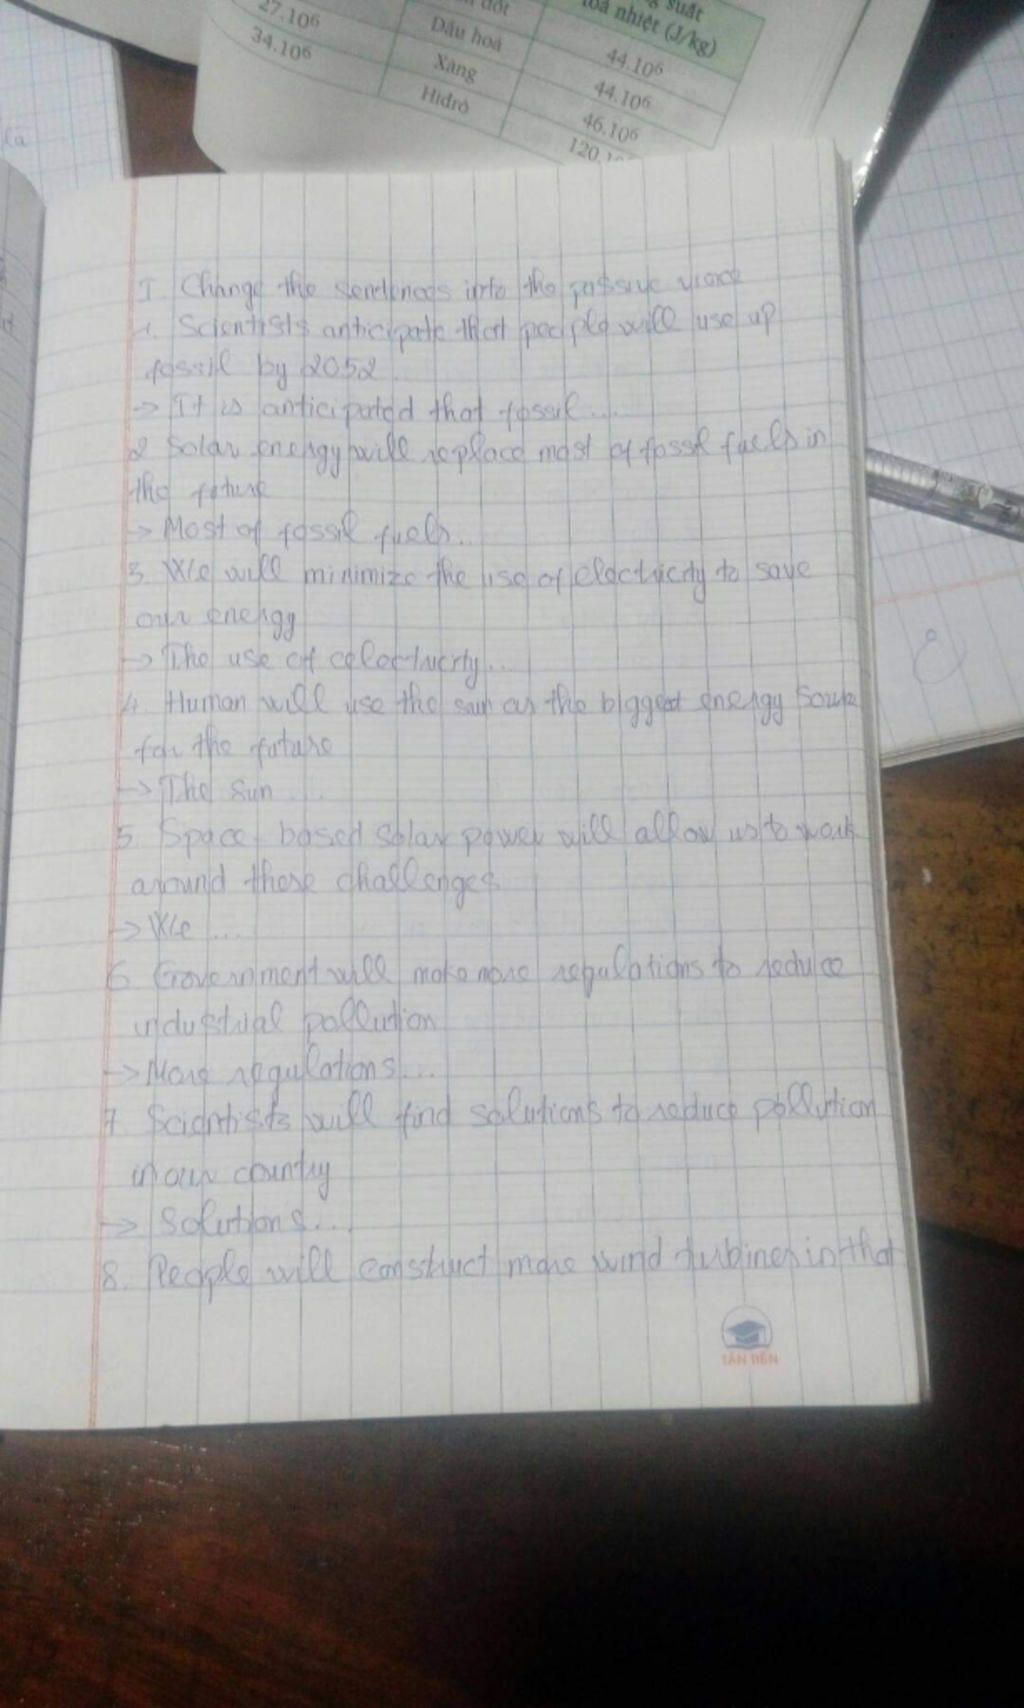 27.10⁶
34.10⁶
đốt
Dầu hoả
Xăng
Hiđrô
suất
toả nhiệt (J/kg)
44.10⁶
44.10⁶
46.10⁶
I. Change the sentences into the passive voice
1. Scientists anticipate that people will use up
fossil by 2052
-> It is anticipated that fossil...
2 Solar energy will replace most of fossil fuels in
the future
-> Most of fossil fuels...
3 We will minimize the use of electricity to save
our energy
-> The use of eelectricity...
4. Human will use the sun as the biggest energy
for the future
-> The sun ...
5 Space-based solar power will allow us to work
around these challenges
-> We ...
6 Government will make more regulations to reduce
industrial pollution
-> More regulations...
7. Scientists will find solutions to reduce pollution
in our country
-> Solutions...
8. People will construct more wind turbines in that
TÂN TIẾN